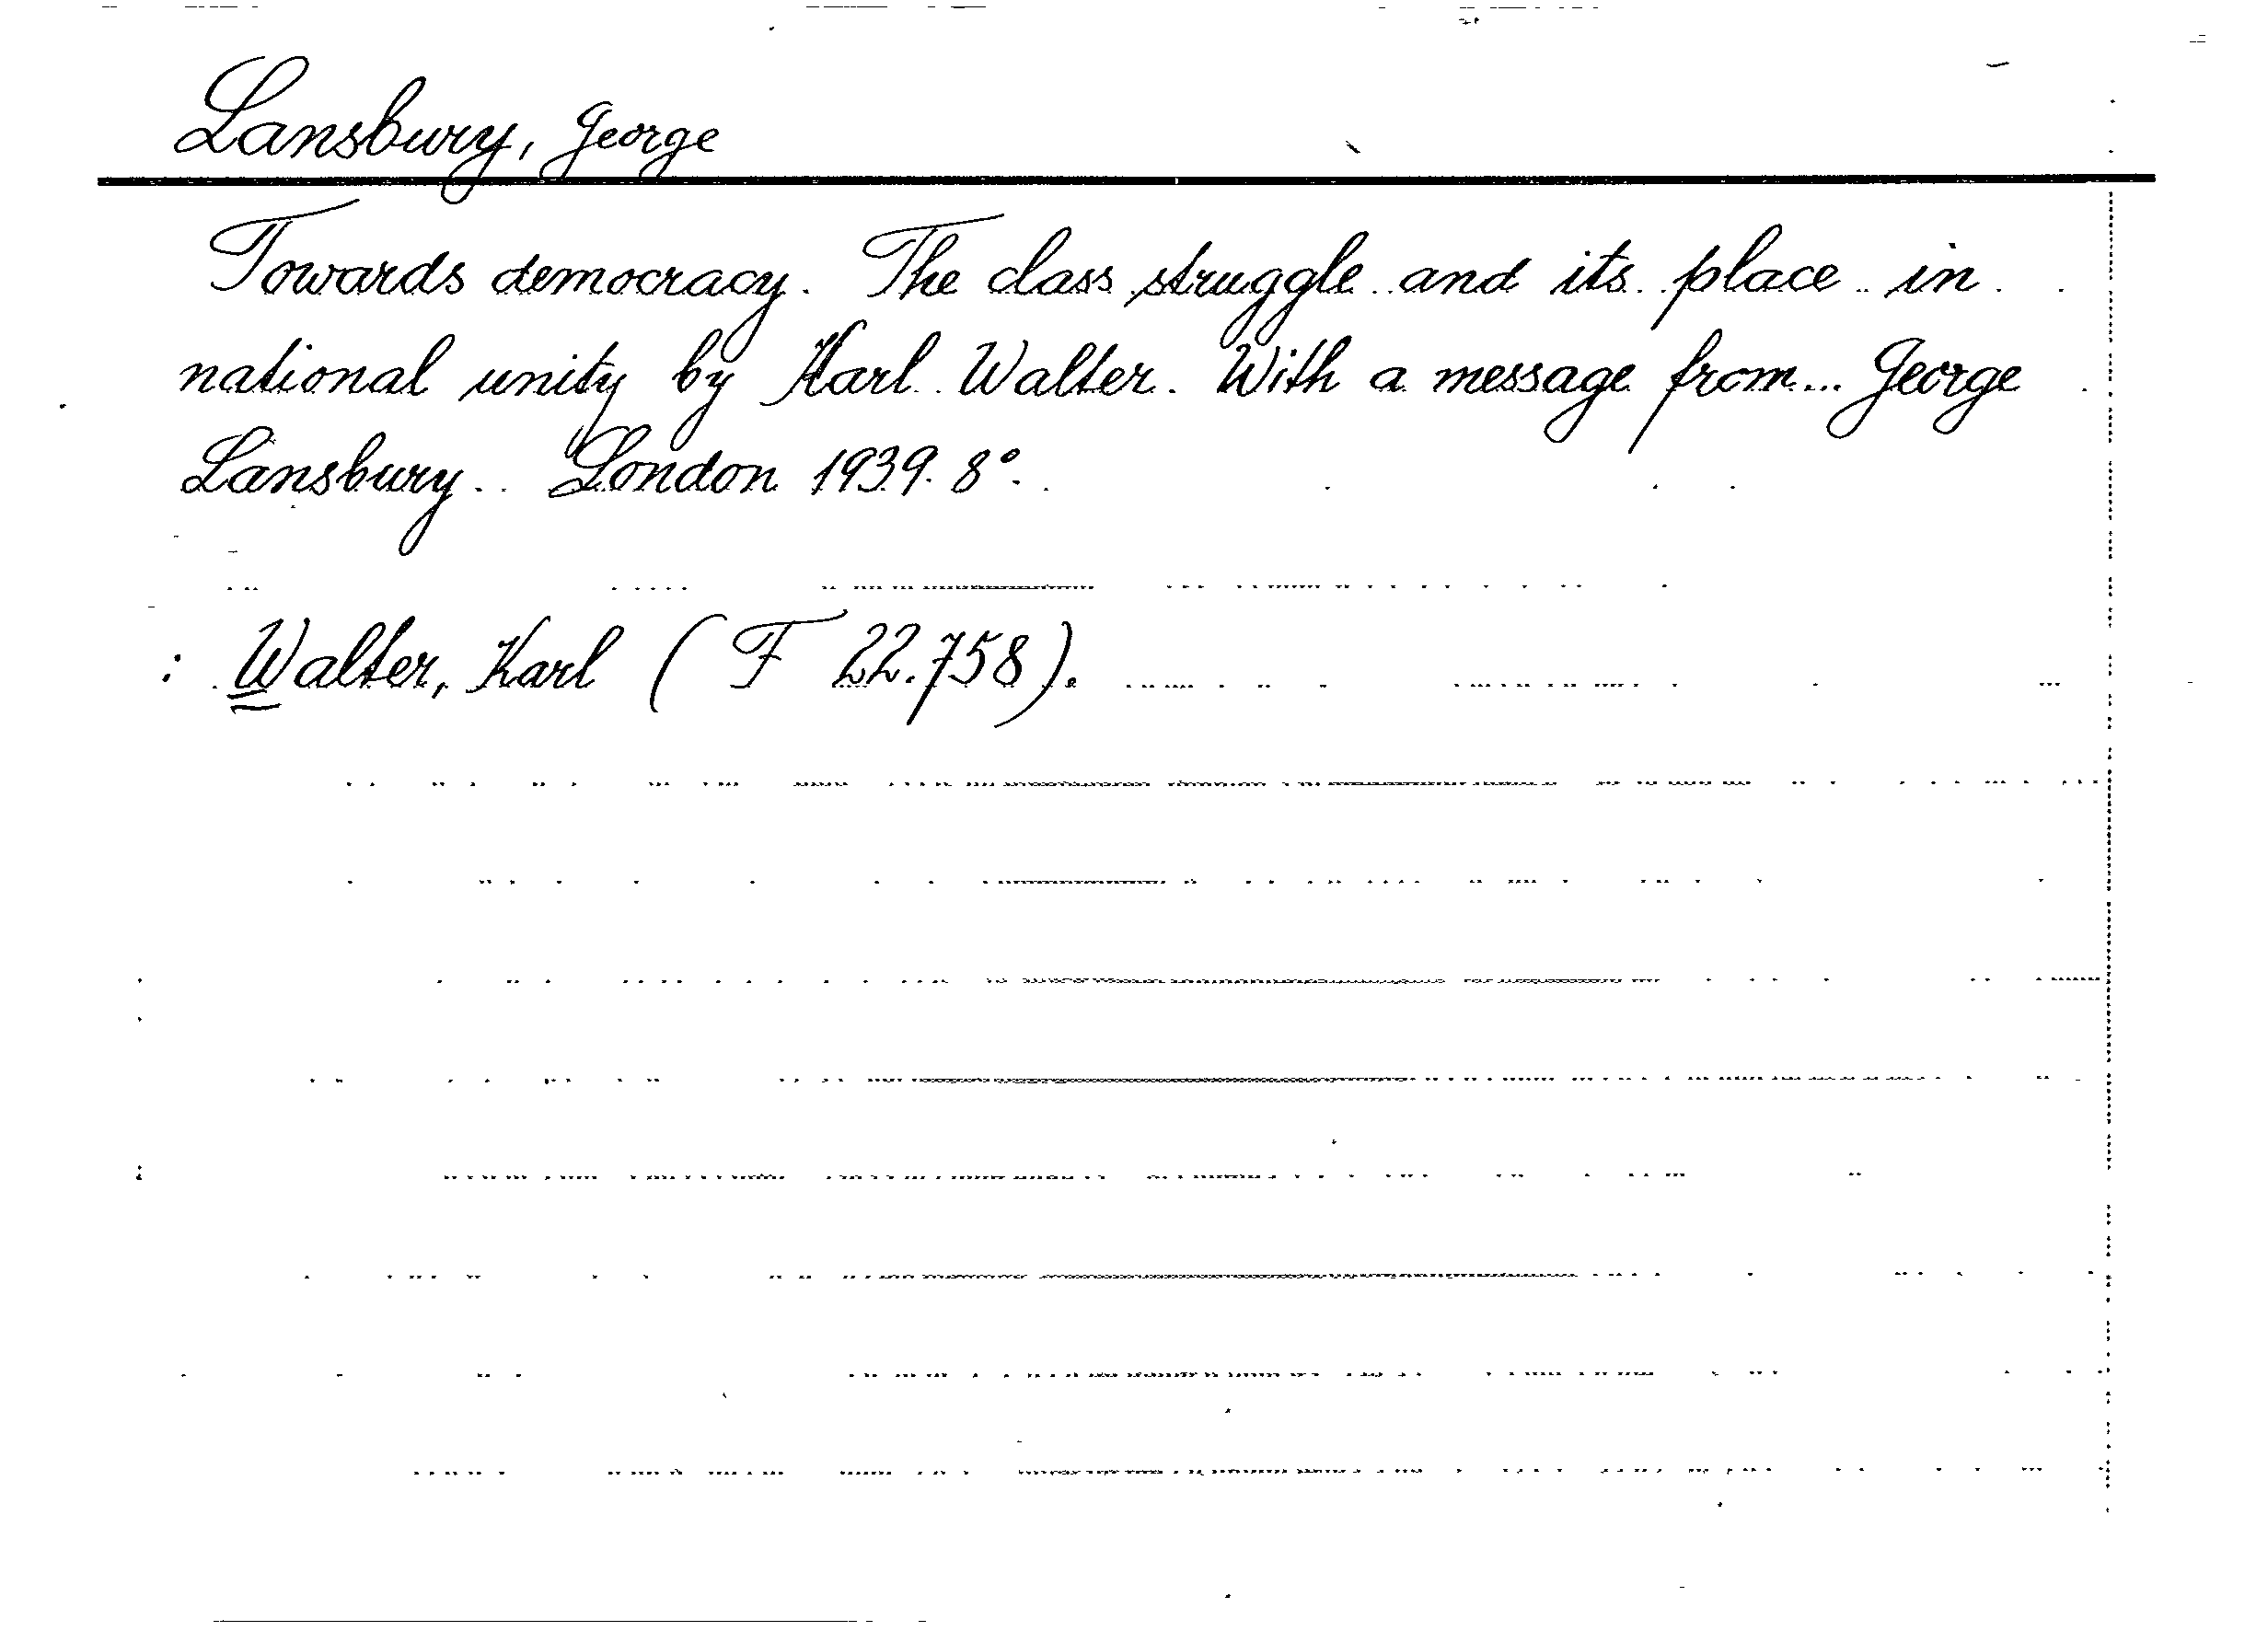 Lansbury, George
Towards democracy. The class struggle and its place in
national unity by Karl Walter. With a message from... George
Lansbury. London 1939. 8°.
: Walter, Karl ( F 22.758).